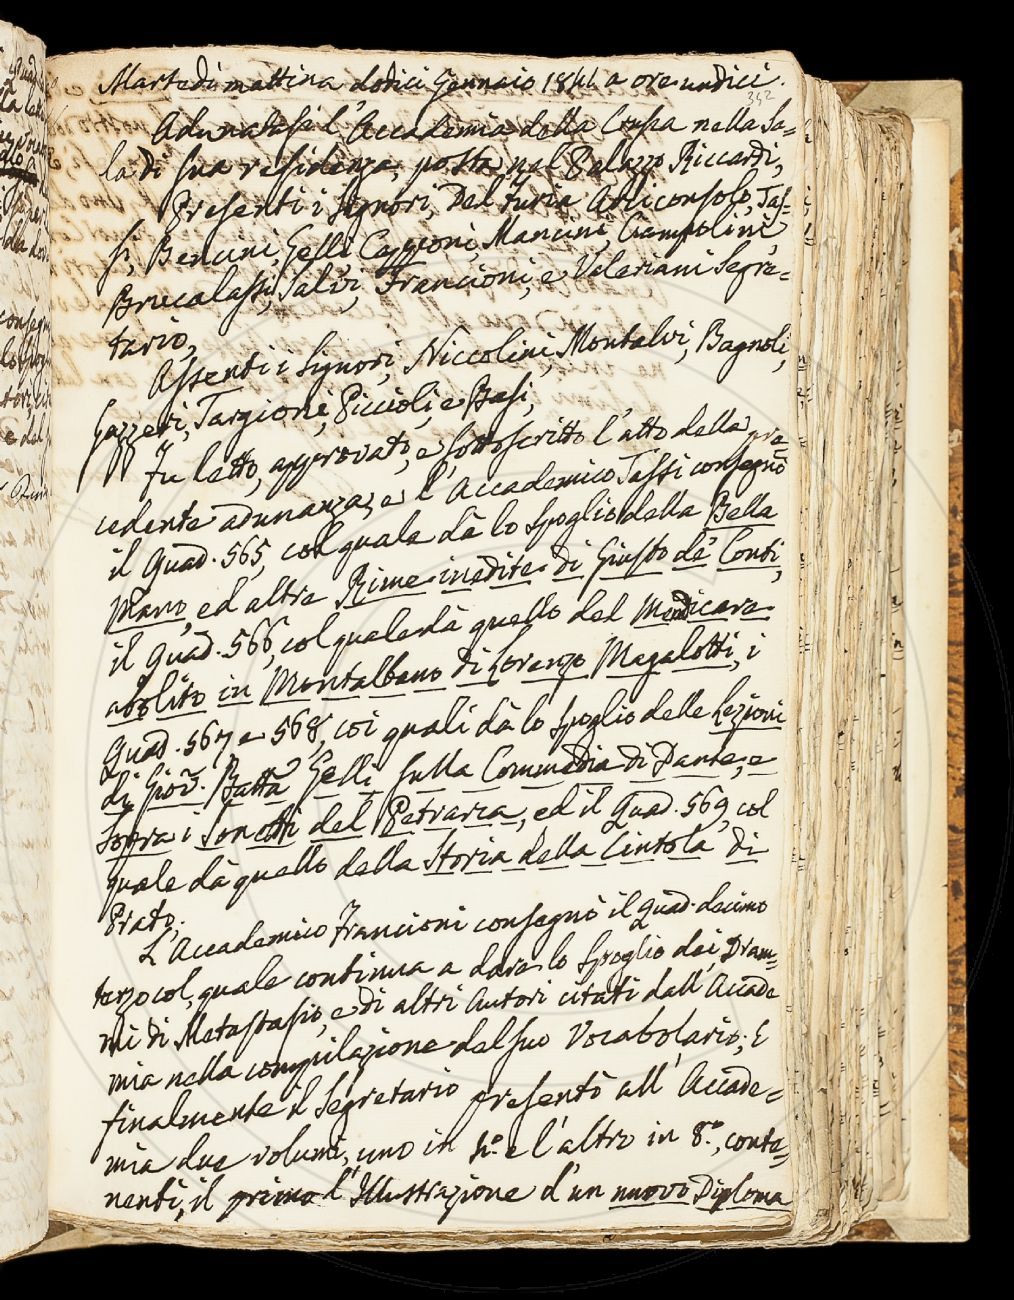 Martedì mattina dodici Gennaio 1841 a ore undici.
342
Adunatasi l'Accademia della Crusca nella Sa=
la di sua residenza, posta nel Palazzo Riccardi,
Presenti i Signori, Del Furia Arciconsolo, Tas-
si, Bencini, Gelli, Capponi, Mancini, Ciampolini,
Brucalassi, Salvi, Francioni, e Valeriani Segre=
tario,
Assenti i Signori, Niccolini, Montalvi, Bagnoli,
Gazzeri, Targioni, Piccioli, e Basi,
Fu letto, approvato, e sottoscritto l'atto della pre
cedente adunanza, e l'Accademico Tassi consegnò
il Quad. 565, col quale dà lo spoglio della Bella
Mano, ed altre Rime inedite di Giusto de' Conti,
il Quad. 566, col quale dà quello del Mendicare
abolito in Montalbano di Lorenzo Magalotti, i
Quad. 567 e 568, coi quali dà lo spoglio delle Lezioni
di Giov. Batta Gelli sulla Commedia di Dante, e
sopra i Sonetti del Petrarca, ed il Quad. 569, col
quale dà quello della Storia della Cintola di
Prato.
L'Accademico Francioni consegnò il Quad. decimo
terzo col quale continua a dare lo spoglio dei Dram=
mi di Metastasio, e di altri Autori citati dall'Accade
mia nella compilazione del suo Vocabolario; E
finalmente il Segretario presentò all'Accade=
mia due volumi, uno in 4.º e l'altro in 8.º, conte=
nenti, il primo l'Illustrazione d'un nuovo Diploma